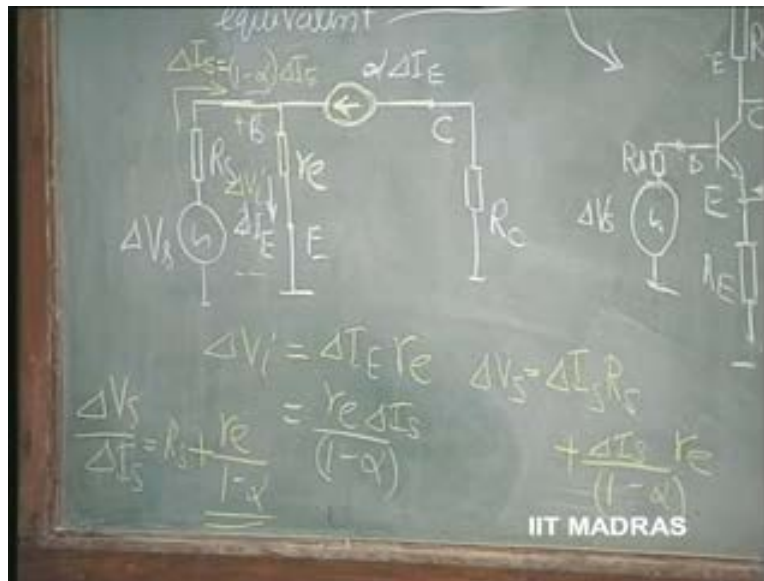 equivalent
ΔI_s = (1-α)ΔI_E
αΔI_E
+B
C
R_s
r_e
ΔV_i
ΔI_E
E
ΔV_s
R_C
E
R
C
R_s
B
E
ΔV_s
R_E
ΔV_i = ΔI_E r_e
= r_e ΔI_s / (1-α)
ΔV_s / ΔI_s = R_s + r_e / 1-α
ΔV_s = ΔI_s R_s
+ ΔI_s / (1-α) r_e
IIT MADRAS